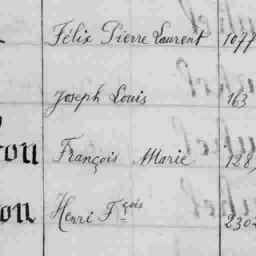 Félix Pierre Laurent 1077
Joseph Louis 163
François Marie 128
Henri Fçois 2302